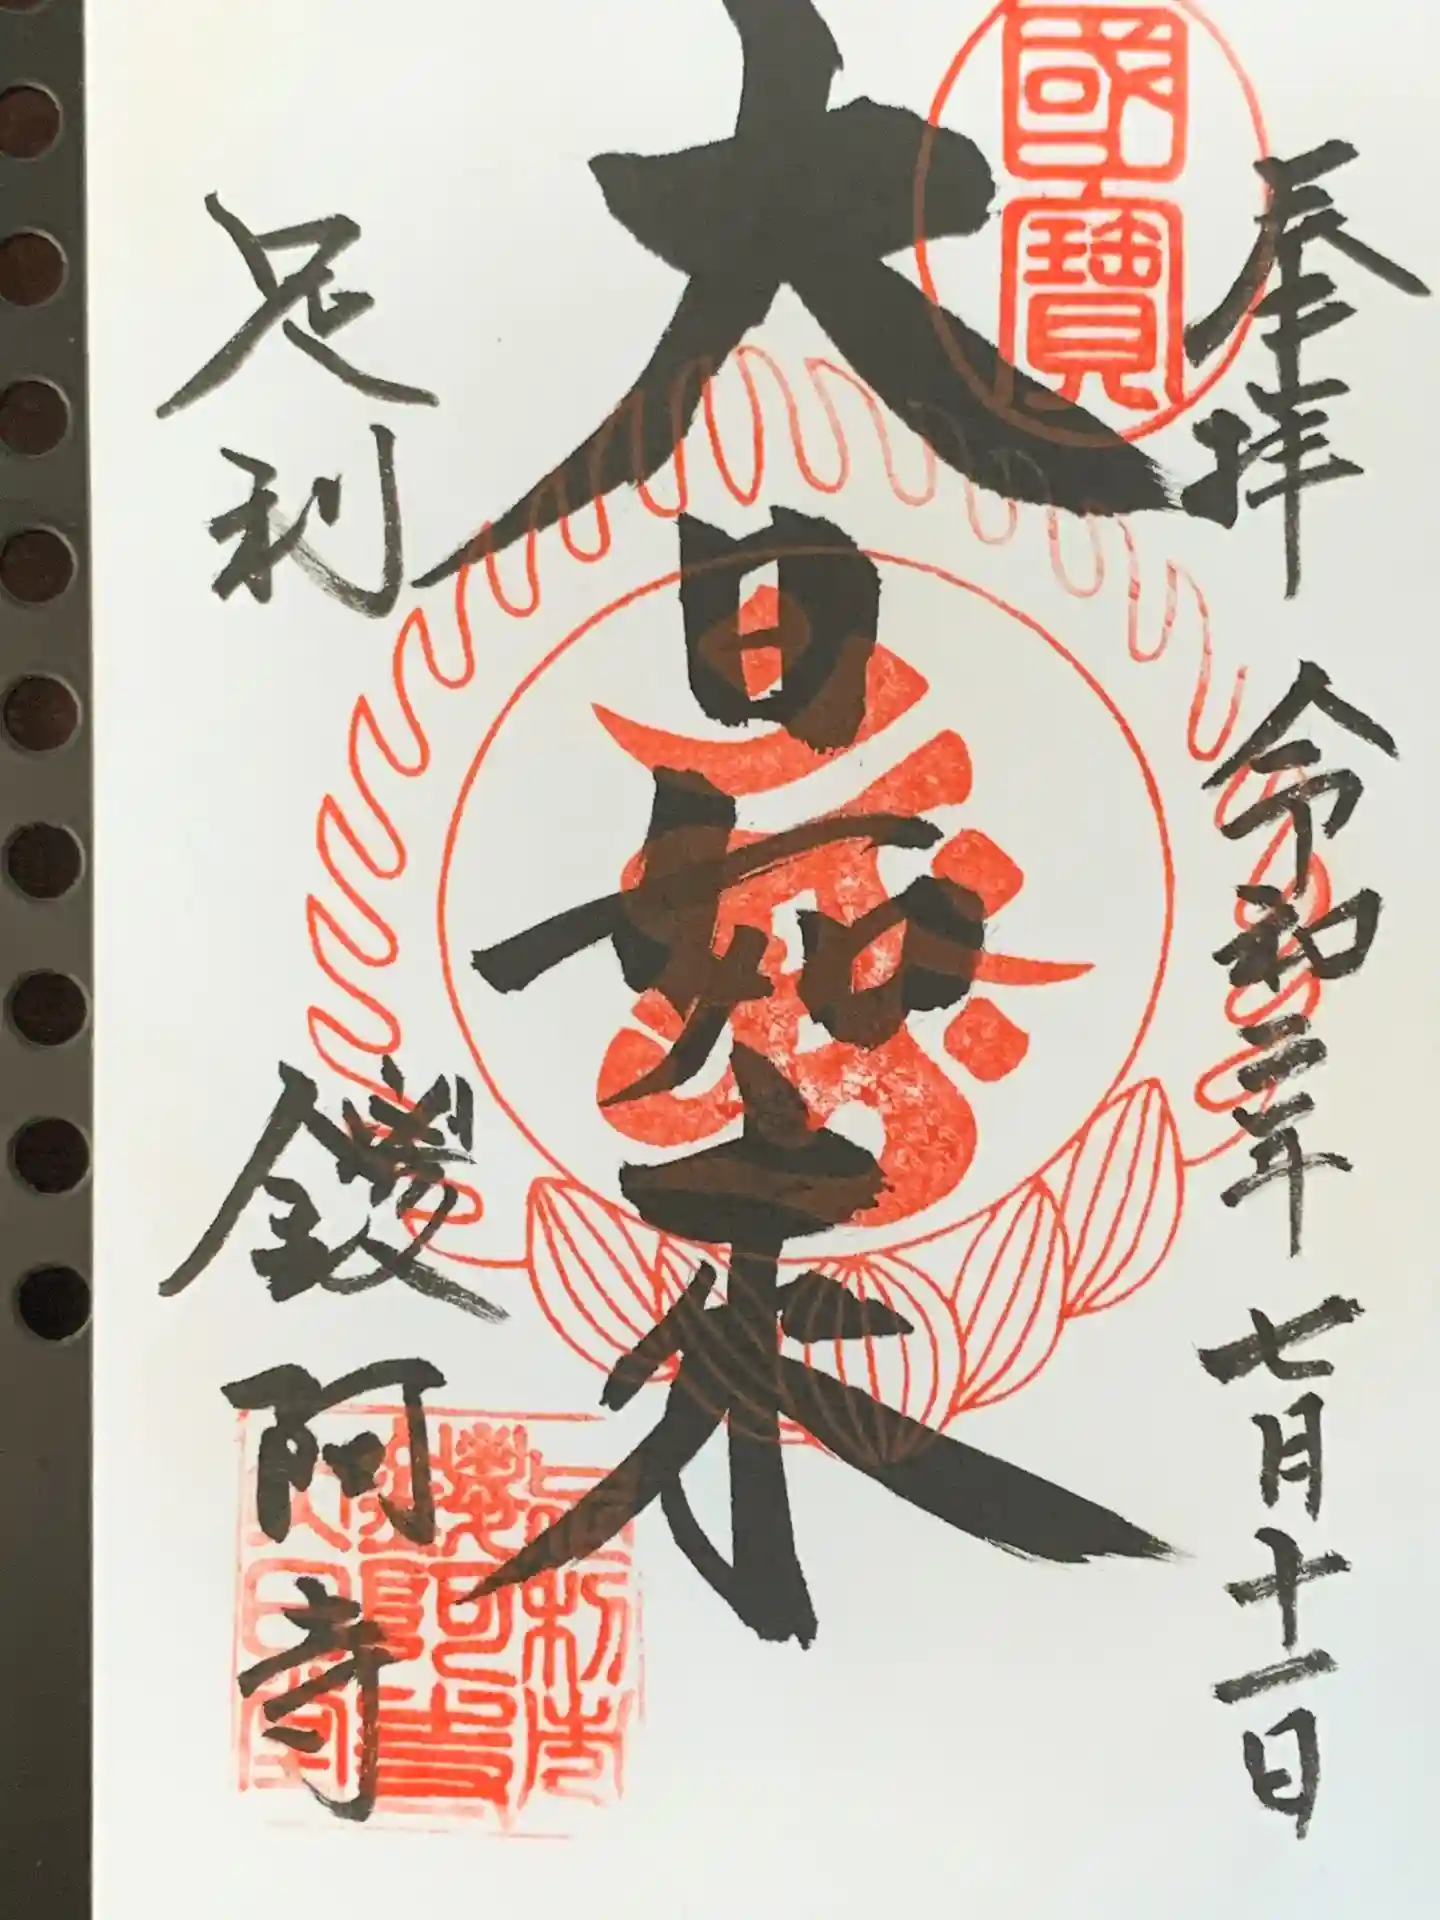 奉拝 令和二年 七月十一日
國寶
大日如来
足利 鑁阿寺
足利市
鑁阿寺
大日堂